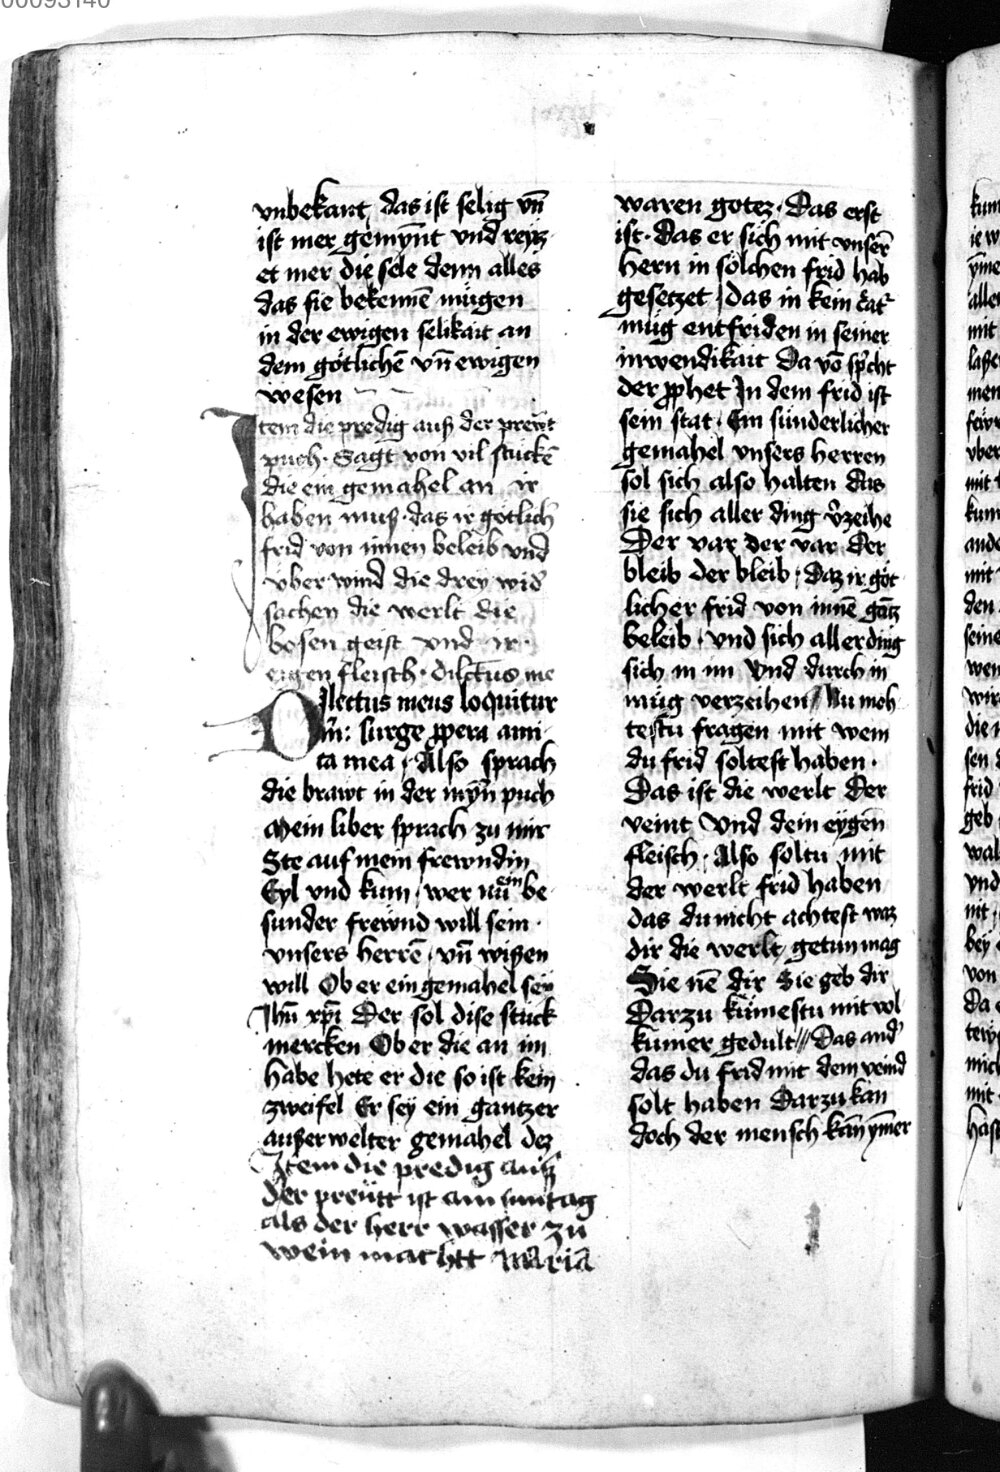 00093140
vnbekant, das ist selig vn̄
ist mer gemÿnt vnd reytz
et mer die sele denn alles
das sie bekennē mügen
in der ewigen selikait an
dem götlichē vn̄ ewigen
wesen
Item die predig auß der prewt
puch · Sagt von vil stuckē
die ein gemahel an ir
haben muß · das ir gotlich
frid von innen beleib vnd
vber wind die drey wid̕
sachen die werlt die
bosen geist vnd ir ·
eigen fleisch · dilctus me
Dilectus meus loquitur
m̄: surge ꝓpera ami
ca mea, Also sprach
die brawt in der mÿn puch
Mein liber sprach zu mir
Ste auf mein frewndin
Eyl vnd kum, wer nu ein be
sunder frewnd will sein ·
vnsers herrē, vn̄ wißen
will Ob er ein gemahel sey
Jhū xp̄i Der sol dise stuck
mercken Ob er die an im
habe hete er die so ist kein
zweifel Er sey ein gantzer
außerwelter gemahel dez
Item die predig auß
der prewtt ist am suntag
als der herr wasser zu
wein machtt Maria
waren gotez · Das erst
ist · Das er sich mit vnserē
hern in sölchen frid hab
gesetzet, das in kein
müg entfriden in seiner
inwendikait Da vō sp̄cht
der ꝓphet In dem frid ist
sein stat · Ein sunderlicher
gemahel vnsers herren
sol sich also halten das
sie sich aller ding v̄zeihe
Der var der var Der
bleib der bleib, Daz ir göt
licher frid von innē gātz
beleib, vnd sich aller ding
sich in im vnd durch in
müg verzeihen // Nu moh
testu fragen mit wem
du frid soltest haben ·
Das ist die werlt Der
veint Vnd dein eygen
fleisch · Also soltu mit
der werlt frid haben
das du nicht achtest waz
dir die werlt, getun mag
Sie nē dir Sie geb dir
Darzu kümestu mit vol
kumer gedult /// Das and̕
das du frid mit dem veind
solt haben Darzu kan
doch der mensch kān ÿmer